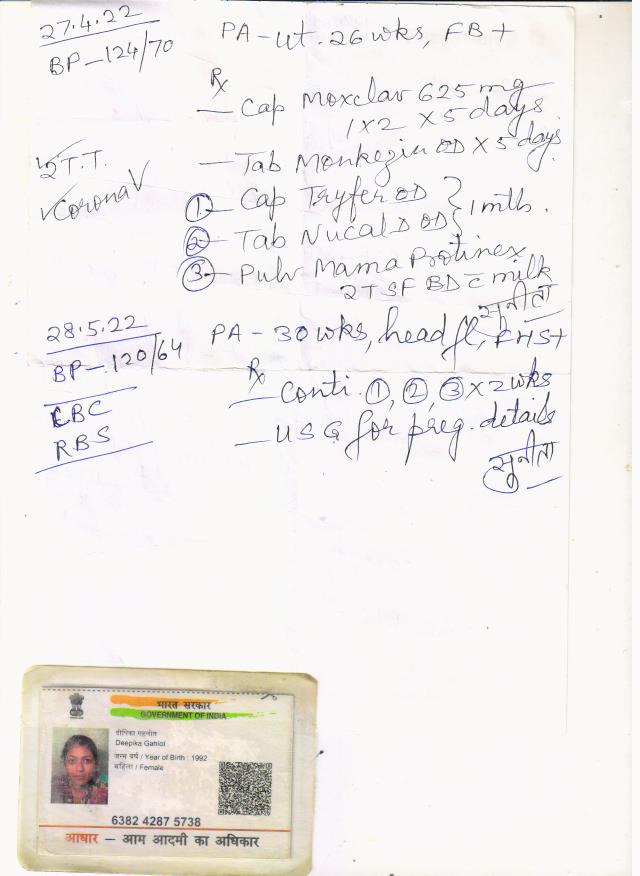 27.4.22
PA - Ut. 26 wks, FB +
BP - 124/70
Rx
- Cap Moxclav 625 mg
1 x 2 x 5 days
2 T.T.
- Tab OD x 5 days
Corona V
① - Cap Tryfer OD
② - Tab Nucal D OD } 1 mth.
③ - Pulv Mama Protinex
2 TSF BD c milk
सुनीता
28.5.22
PA - 30 wks, head fl, FHS +
BP - 120/64
Rx
- Conti. ①, ②, ③ x 2 wks
CBC
- USG for preg. details
RBS
सुनीता
भारत सरकार
GOVERNMENT OF INDIA
दीपिका गहलोत
Deepika Gahlot
जन्म वर्ष / Year of Birth : 1992
महिला / Female
6382 4287 5738
आधार - आम आदमी का अधिकार